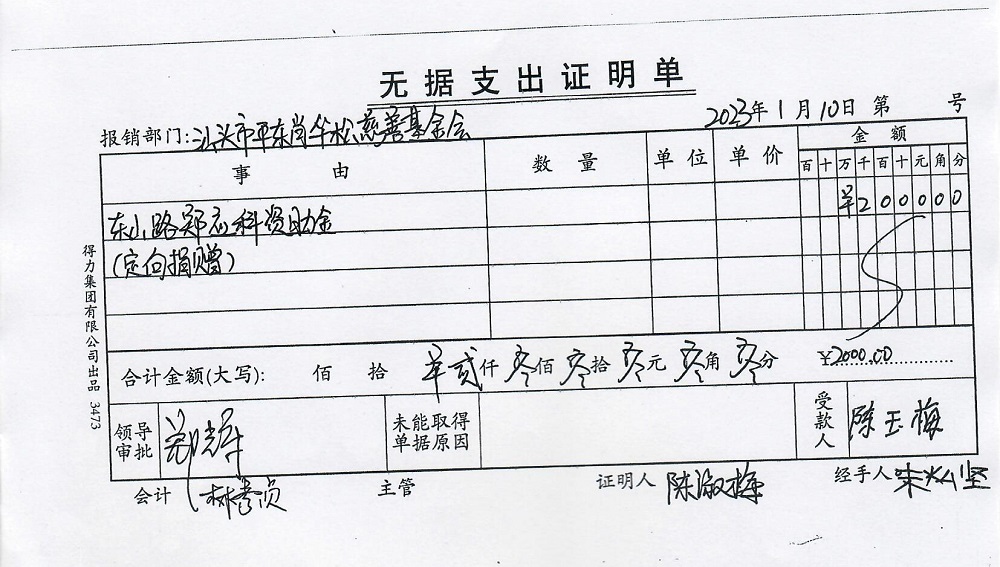 无据支出证明单
2023年1月10日 第 号
报销部门:汕头市平东肖华松慈善基金会
事由 数量 单位 单价 金额
百十万千百十元角分
¥200000
东山路郑应科资助金
(定向捐赠)
合计金额(大写): 佰 拾 ¥贰仟零佰零拾零元零角零分 ¥2000.00
领导审批 未能取得单据原因 受款人 陈玉梅
会计 主管 证明人 陈淑梅 经手人
得力集团有限公司出品 3473